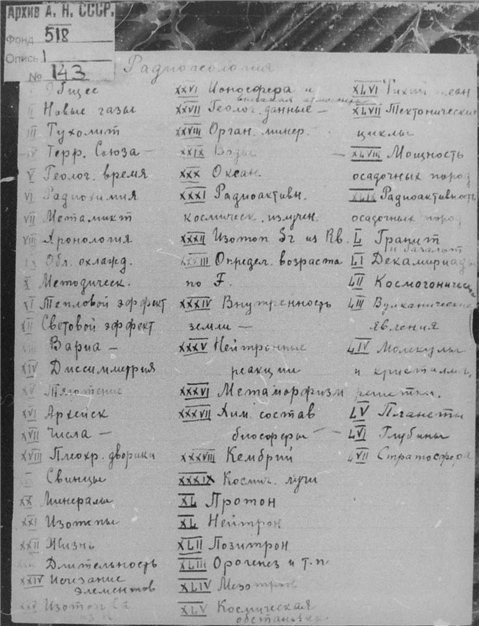 Архив А. Н. СССР.
Фонд 518
Опись 1
№ 143
Радиогеология
I Общее
II Новые газы
III Тухолит
IV Терр. Союза —
V Геолог. время
VI Радиохимия
VII Метамикт
VIII Хронология
IX Обл. охлажд.
X Методическ.
XI Тепловой эффект
XII Световой эффект
XIII Вариа —
XIV Диссимметрия
XV Тяготение
XVI Архейск
XVII Числа —
XVIII Плеохр. дворики
Свинцы
XX Минералы
XXI Изотопы
XXII Жизнь
Длительность
XXIV Исчезание
элементов
Изотоп Ca
XXVI Ионосфера и
XXVII Геолог. данные —
XXVIII Орган. минер.
XXIX Воды
XXX Океан.
XXXI Радиоактивн.
космическ. излучен.
XXXII Изотоп Sr из Rb.
XXXIII Определ. возраста
по F.
XXXIV Внутренность
земли —
XXXV Нейтронные
реакции
XXXVI Метаморфизм
XXXVII Хим. состав
биосферы
XXXVIII Кембрий
XXXIX Косм. лучи
XL Протон
XLI Нейтрон
XLII Позитрон
XLIII Орогенез и т.п.
XLIV Мезотрон
XLV Космическая
обстановка
XLVI Тихий океан
XLVII Тектонические
циклы
XLVIII Мощность
осадочных пород
XLIX Радиоактивность
осадочных пород
L Гранит
и базальт
LI
LII Космогонический
LIII Вулканические
явления
LIV Молекулы
и кристаллич.
решетки.
LV Планеты
LVI Глубины
LVII Стратосфера